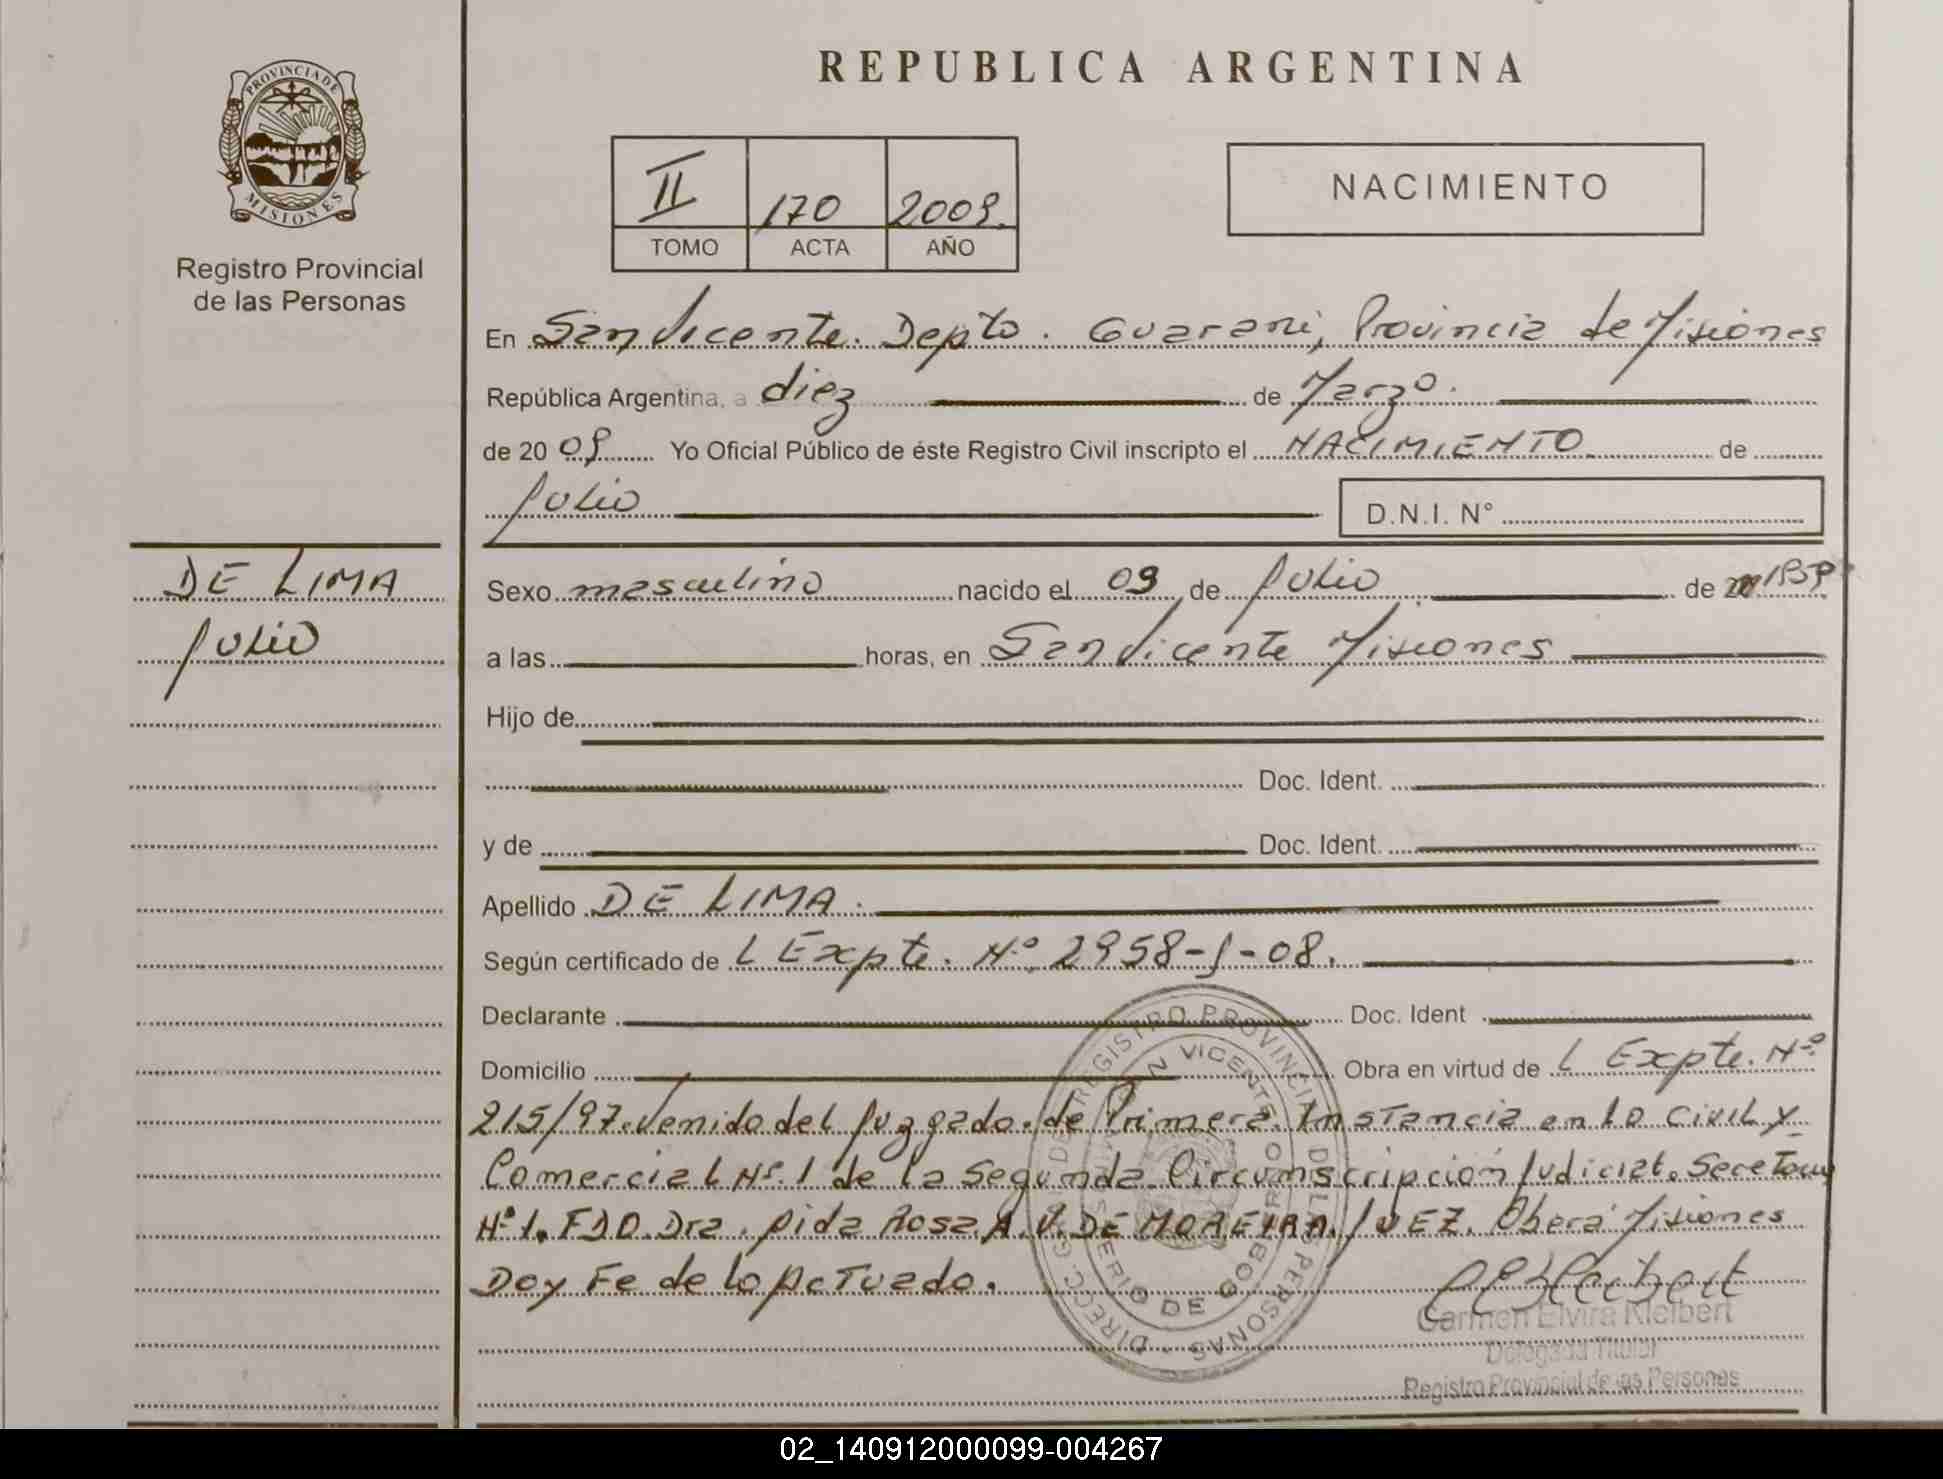 PROVINCIA DE
MISIONES
Registro Provincial
de las Personas
REPUBLICA ARGENTINA
II 170 2009.
TOMO ACTA AÑO
NACIMIENTO
En San Vicente. Depto. Guarani, Provincia de Misiones
República Argentina, a diez de Marzo.
de 20 09 Yo Oficial Público de éste Registro Civil inscripto el NACIMIENTO. de
Julio
D.N.I. N°
DE LIMA
Julio
Sexo masculino nacido el 09 de Julio de 1959
a las horas, en San Vicente Misiones
Hijo de
Doc. Ident.
y de Doc. Ident.
Apellido DE LIMA.
Según certificado de L Expte. Nº 2958-J-08.
Declarante Doc. Ident
Domicilio Obra en virtud de L Expte. Nº
215/97. Venido del Juzgado de Primera Instancia en lo Civil y
Comercial Nº. 1 de la Segunda Circumscripción Judicial. Secetaria
Nº 1. FDO. Dra. Aida Rosa. A. V. DE MOREIRA. JUEZ. Oberá Misiones
Doy Fe de lo Actuado.
DIRECC. G. DE REGISTRO PROVINCIAL DE LAS PERSONAS
SAN VICENTE
MINISTERIO DE GOBIERNO
Carmen Elvira Kleibert
Delegada Titular
Registro Provincial de las Personas
02_140912000099-004267